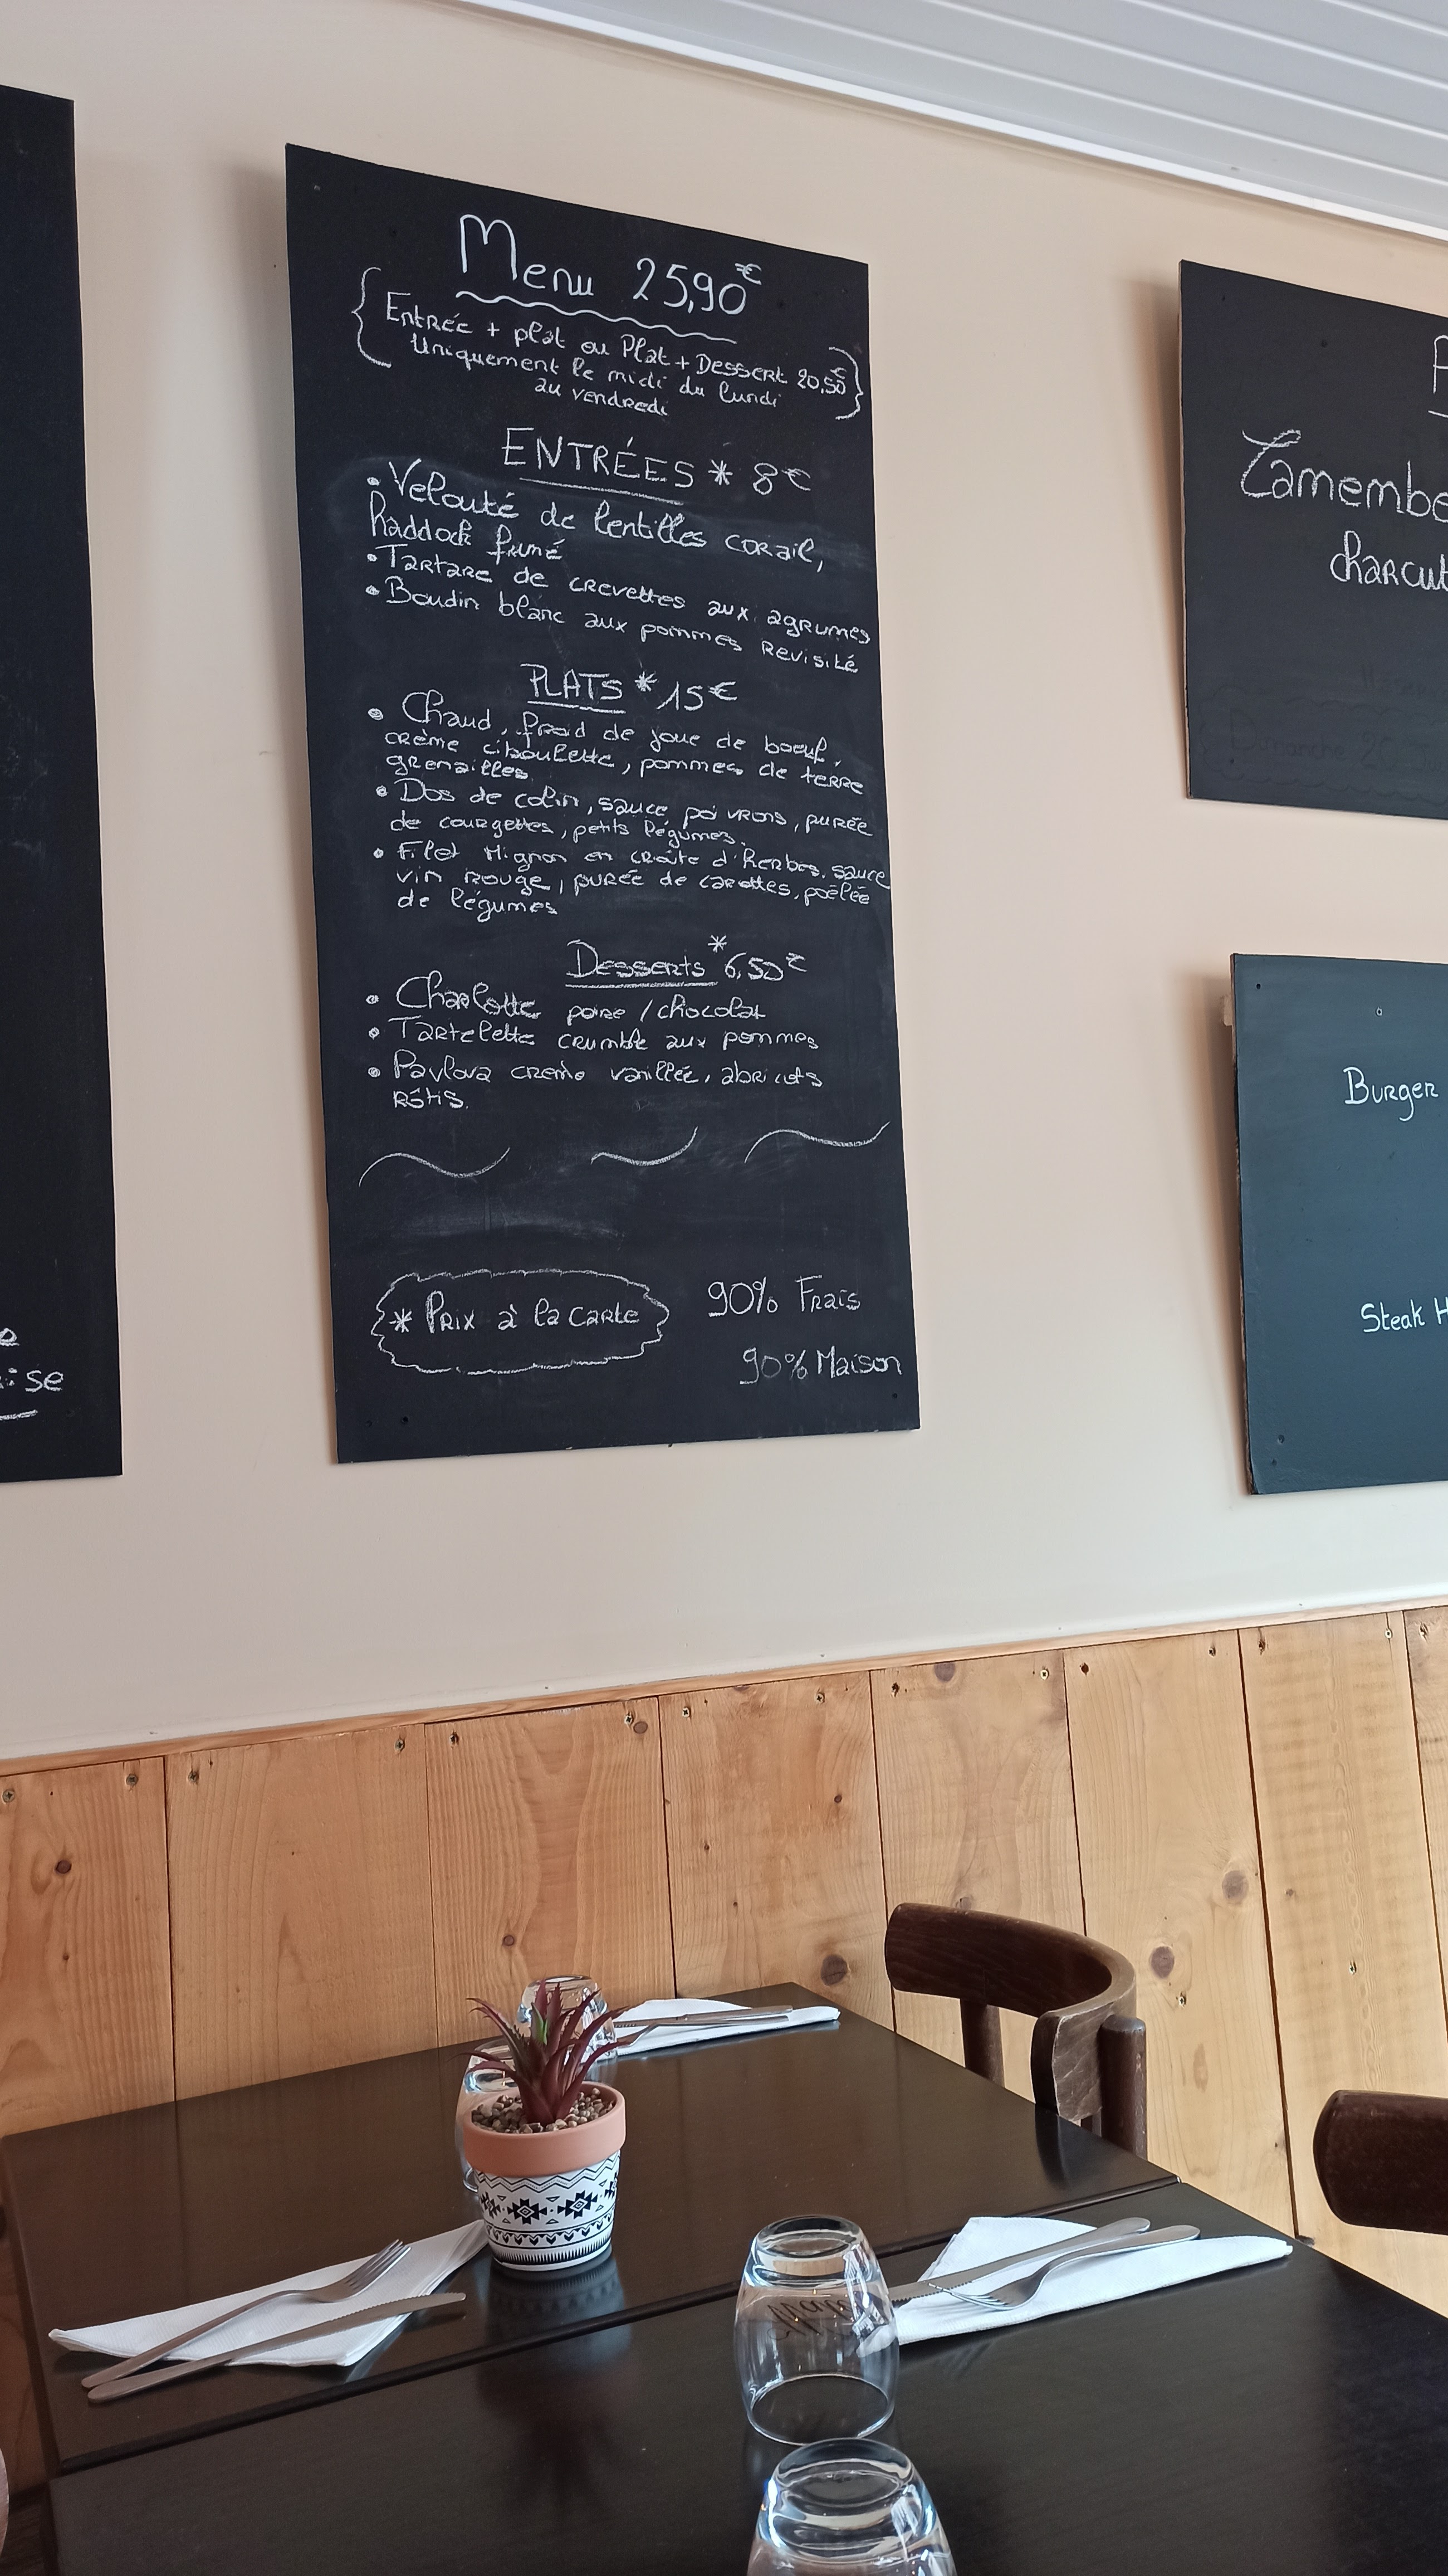 Menu 25,90€
Entrée + plat ou Plat + Dessert 20,50€
Uniquement le midi du lundi
au vendredi
ENTRÉES * 8€
• Velouté de lentilles corail,
haddock fumé
• Tartare de crevettes aux agrumes
• Boudin blanc aux pommes revisité
PLATS * 15€
• Chaud, froid de joue de boeuf,
crème ciboulette, pommes de terre
grenailles
• Dos de colin, sauce poivrons, purée
de courgettes, petits légumes.
• Filet Mignon en croûte d'herbes, sauce
vin rouge, purée de carottes, poêlée
de légumes
Desserts * 6,50€
• Charlotte poire / chocolat
• Tartelette crumble aux pommes
• Pavlova crème vanillée, abricots
rôtis.
* Prix à la carte
90% Frais
90% Maison
Camembe
charcut
Burger
Steak H
se